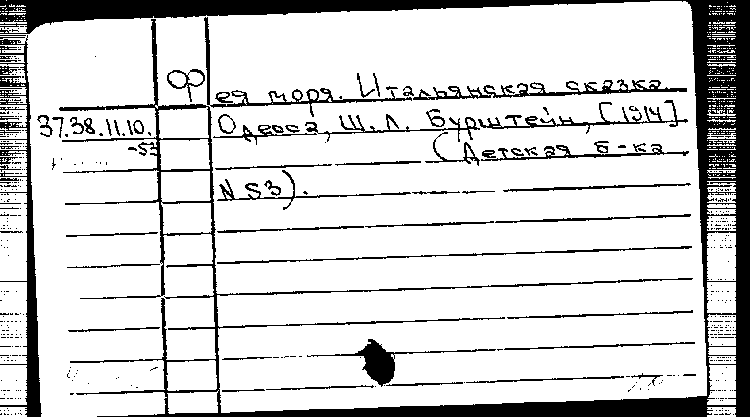 Фея моря. Итальянская сказка.
37.38.11.10. Одесса, Ш. Л. Бурштейн, [1914]
-53 (Детская б-ка
N 53).